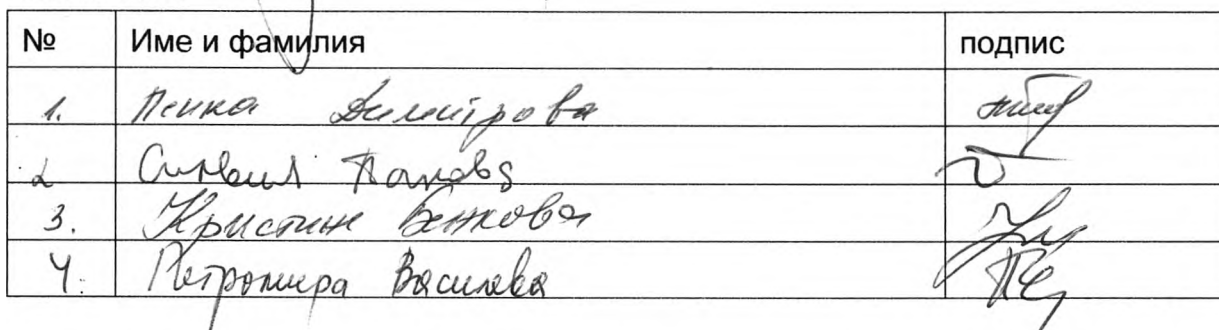 № Име и фамилия подпис
1. Пенка Димитрова
2
3. Кристин Бенкова
4. Петромира Василева